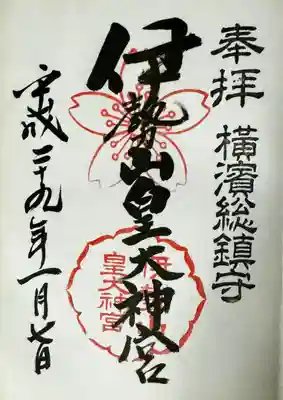 奉拝
横濱総鎮守
伊勢山皇大神宮
皇大神宮
平成二十九年一月七日